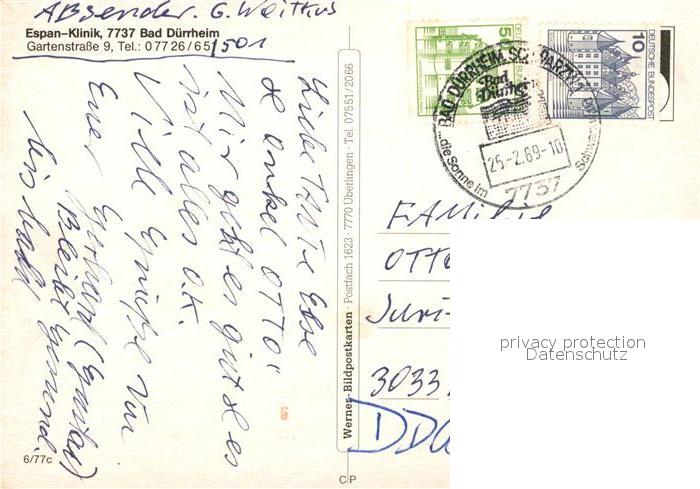 Absender. G. Weitkus
Espan-Klinik, 7737 Bad Dürrheim
Gartenstraße 9, Tel.: 0 77 26 / 65 / 501
Liebe Tante Else
& Onkel Otto!
Mir geht es gut & es
ist alles o.k.
Viele Grüße von
Euer Gerhard (Gustav)
Bleibt gesund.
bis bald
6/77c
Werner-Bildpostkarten · Postfach 1623 · 7770 Überlingen · Tel. 07551/2066
C P
50
10
DEUTSCHE BUNDESPOST
BAD DÜRRHEIM, SCHWARZW
Bad Dürrheim
...die Sonne im Schwarz
25.-2.89-10
7737
Familie
Otto
Juri-
3033
DDR
privacy protection
Datenschutz